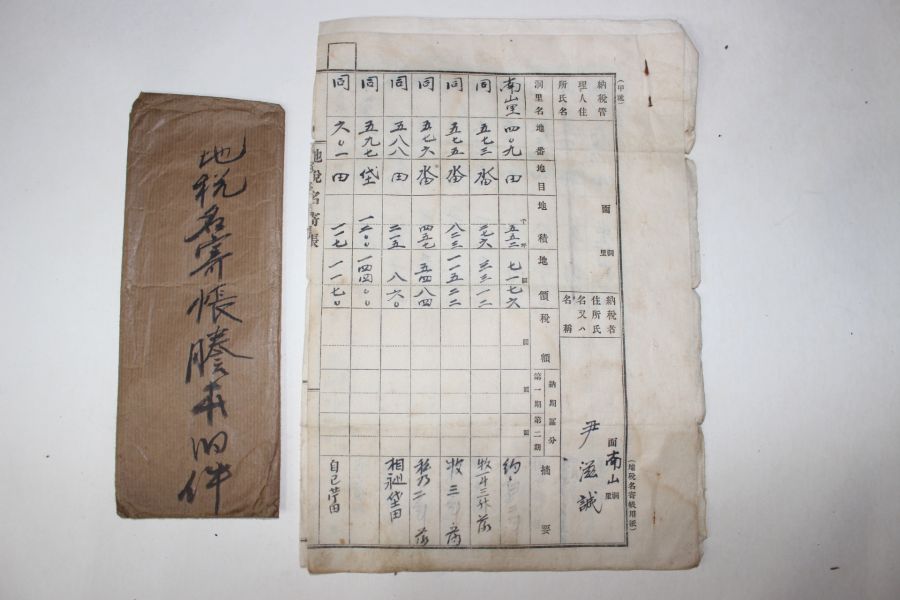 地税名寄帳謄本旧件
(甲號)
(地稅名寄帳用紙)
納稅管
理人住
所氏名
面
洞
里
納稅者
住所氏
名又ハ
名稱
面
南山
洞
里
尹滋誠
洞里名 地番 地目 地積 地價 稅額 納期區分 第一期 第二期 摘要
南山里 四〇九 田 五五二 七一七六
同 五七三 畓 二七六 三三一二
同 五七五 畓 八二三 一一五二二
同 五七六 畓 四五七 五四八四
同 五八八 田 二一五 八六〇 相祉垈田
同 五九七 垈 一二〇〇 一四四〇〇
同 六〇一 田 一一七 一一七〇 自己營田
地稅名寄帳